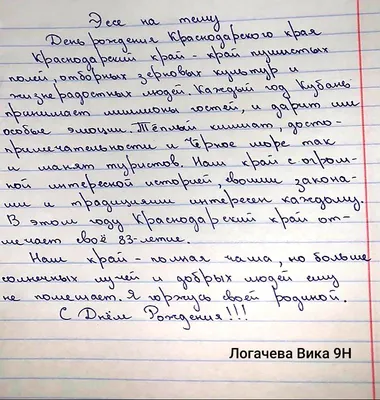 Эссе на тему
День рождения Краснодарского края
Краснодарский край - край пушистых
полей, отборных зерновых культур и
жизнерадостных людей. Каждый год Кубань
принимает миллионы гостей, и дарит им
особые эмоции. Тёплый климат, досто-
примечательности и Чёрное море так
и манят туристов. Наш край с огром-
ной интересной историей, своими закона-
ми и традициями интересен каждому.
В этом году Краснодарский край от-
мечает своё 83-летие.
Наш край - полная чаша, но больше
солнечных лучей и добрых людей ему
не помешает. Я горжусь своей родиной.
С Днём Рождения!!!
Логачева Вика 9Н